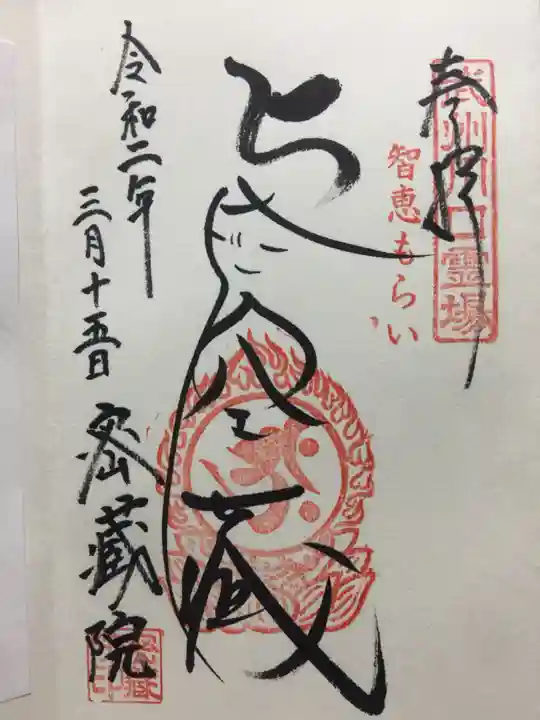 奉拝
武州川口霊場
智恵もらい
虚空蔵
令和二年
三月十五日
密蔵院